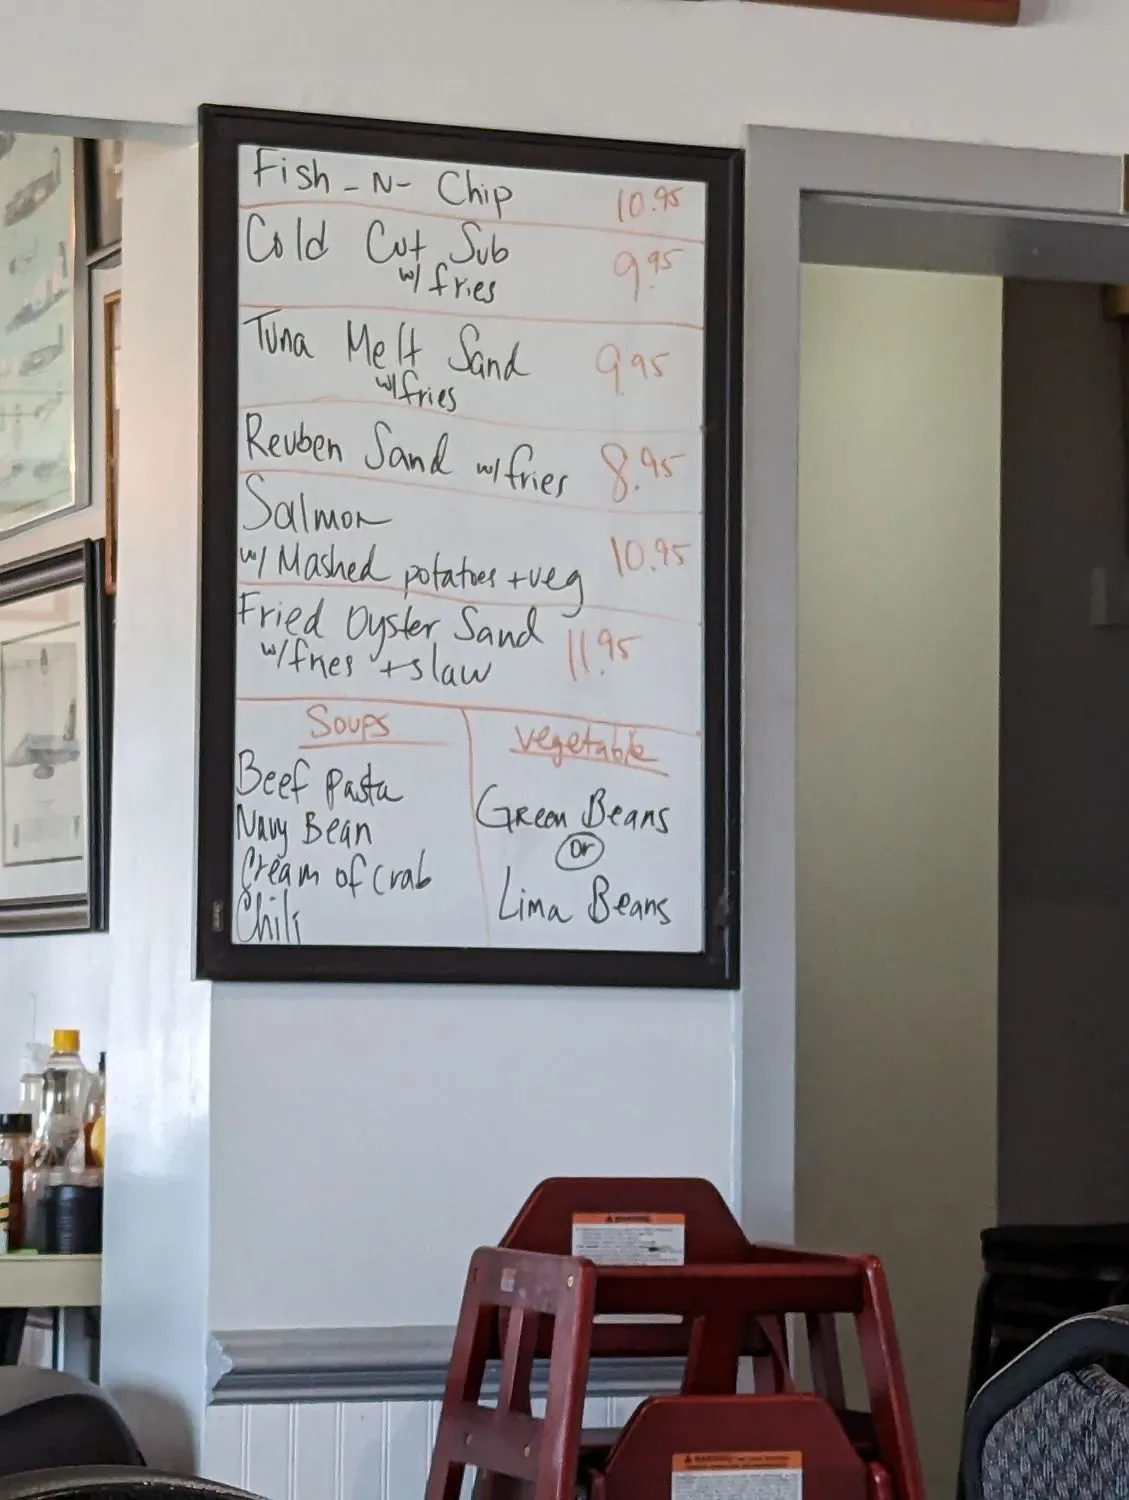 Fish-N-Chip 10.95
Cold Cut Sub 9.95
w/ fries
Tuna Melt Sand 9.95
w/fries
Reuben Sand w/fries 8.95
Salmon
w/ Mashed potatoes + veg 10.95
Fried Oyster Sand 11.95
w/fries + slaw
Soups
Beef Pasta
Navy Bean
Cream of Crab
Chili
vegetable
Green Beans
or
Lima Beans
WARNING
WARNING